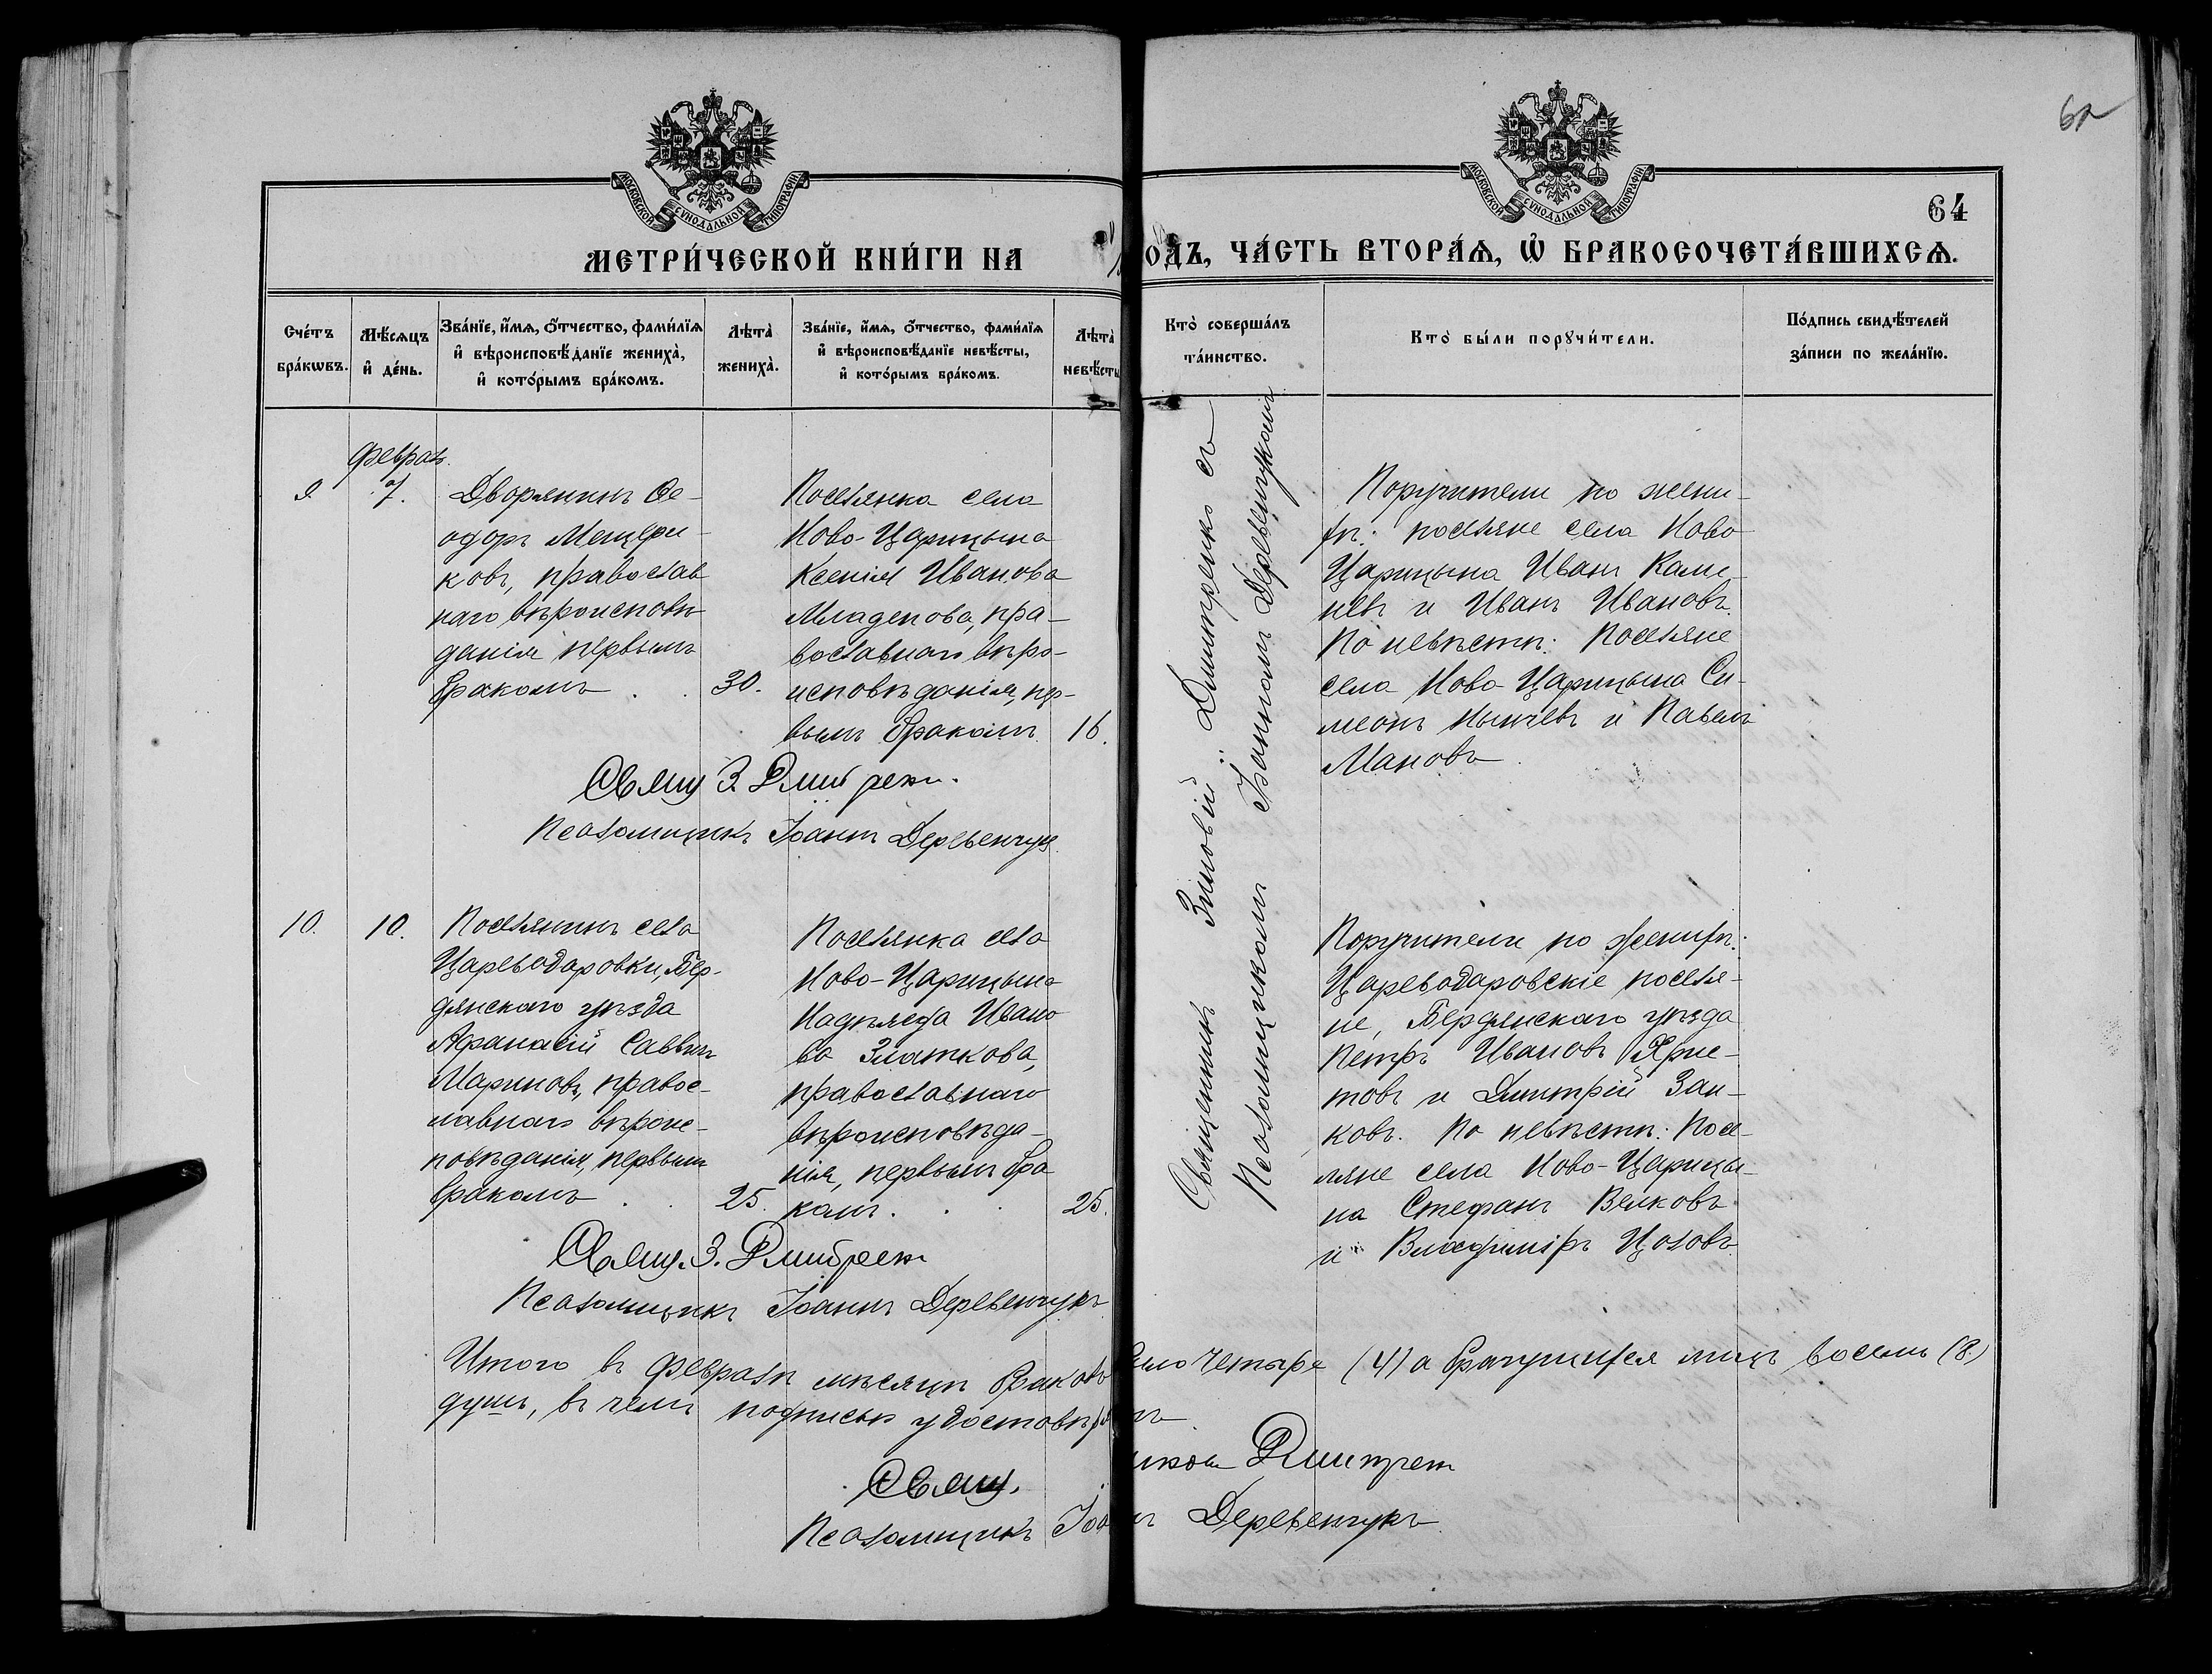 62
64
МОСКОВСКОЙ СѴНОДАЛЬНОЙ ТИПОГРАФІИ
МОСКОВСКОЙ СѴНОДАЛЬНОЙ ТИПОГРАФІИ
МЕТРИ́ЧЕСКОЙ КНИ́ГИ НА
ОДЪ, ЧА́СТЬ ВТОРА́Я, Ѿ БРАКОСОЧЕТА́ВШИХСЯ.
Сче́тъ бра́кѡвъ.
Мѣ́сяцъ и҆ де́нь.
Зва́нїе, и҆́мя, ѻ҆́тчество, фами́лїя и҆ вѣроисповѣ́данїе женихà, и҆ кото́рымъ бра́комъ.
Лѣтà женихà.
Зва́нїе, и҆́мя, ѻ҆́тчество, фами́лїя и҆ вѣроисповѣ́данїе невѣ́сты, и҆ кото́рымъ бра́комъ.
Лѣтà невѣ́сты
Кто̀ соверша́лъ та́инство.
Кто̀ бы́ли порꙋчи́тели.
По́дпись свидѣ́телей за́писи по жела́нїю.
Феврал.
9
7.
Дворянинъ Ѳе-
одоръ Мещери-
ковъ, православ
наго вѣроисповѣ
данія первымъ
бракомъ . . 30.
Поселянка села
Ново-Царицына
Ксенія Иванова
Младенова, пра-
вославнаго вѣро-
исповѣданія, пер-
вымъ бракомъ 16.
Свящ З. Дмитренко
Псаломщикъ Іоаннъ Деревенчук
Священникъ Зиновій Димитренко съ
Псаломщикомъ Іоанномъ Деревенчукомъ
Поручители по жени-
хѣ: поселяне села Ново
Царицына Иванъ Каме-
невъ и Иванъ Ивановъ.
По невѣстѣ: Поселяне
села Ново-Царицына Си-
меонъ Нынчевъ и Павелъ
Мановъ
10.
10.
Поселянинъ села
Цареводаровки, Бер-
дянскаго уѣзда
Афанасій Саввин
Мариновъ, правос-
лавнаго вѣроис-
повѣданія, первымъ
бракомъ . . 25.
Поселянка села
Ново-Царицына
Надѣжда Ивано
ва Златкова,
православнаго
вѣроисповѣда-
нія, первымъ бра
комъ . . 25.
Поручители по женихѣ:
Цареводаровскіе поселя-
не, Бердянскаго уѣзда
Петръ Ивановъ Хрис-
товъ и Димитрій Заи-
ковъ. По невѣстѣ: Посе-
ляне села Ново-Царицы-
на Стефанъ Велковъ
и Владиміръ Цоловъ
Свящ. З. Дмитренко
Псаломщикъ Іоаннъ Деревенчукъ
Итого въ февралѣ мѣсяцѣ браковъ было четыре (4) а брачущихся лицъ восемь (8)
душъ, въ чемъ подписью удостовѣря мъ
Свящ. Дмитренко
Псаломщикъ Іоа нъ Деревенчукъ